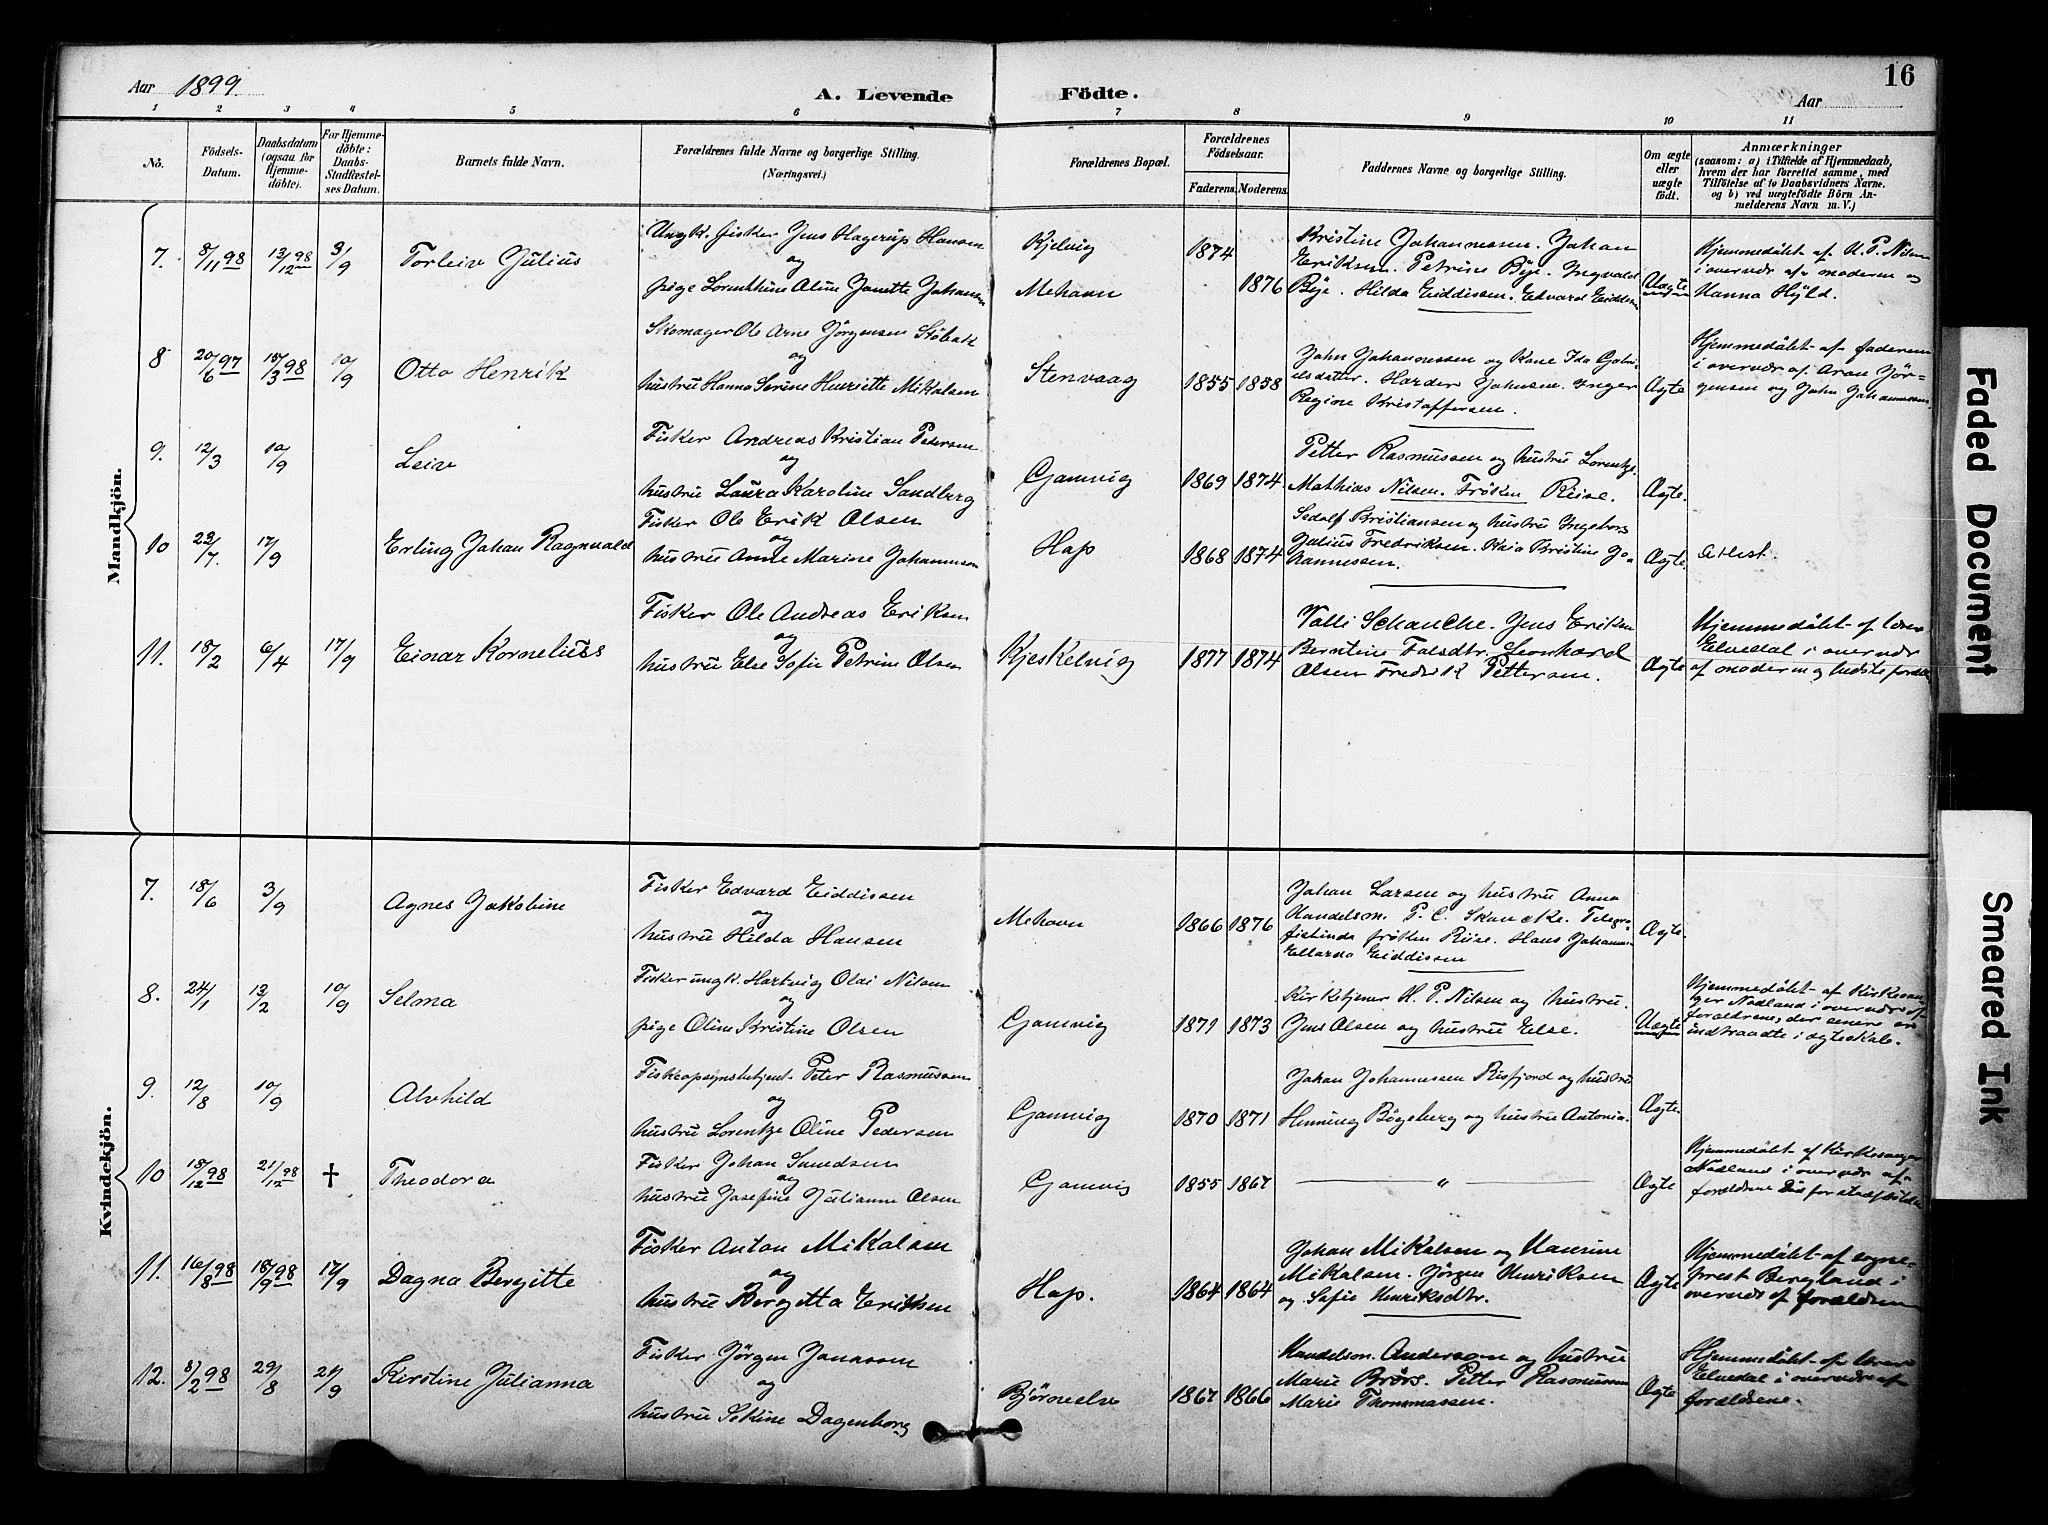 Aar 1899.
A. Levende Födte.
Aar
16
1 2 3 4 5 6 7 8 9 10 11
No.
Födsels-
Datum.
Daabsdatum
(ogsaa for
Hjemme-
döbte).
For Hjemme-
döbte:
Daabs-
Stadfæstel-
ses Datum.
Barnets fulde Navn.
Forældrenes fulde Navne og borgerlige Stilling.
(Næringsvei.)
Forældrenes Bopæl.
Forældrenes
Födselsaar.
Faderens. Moderens.
Faddernes Navne og borgerlige Stilling.
Om ægte
eller
uægte
födt.
Anmærkninger
(saasom: a) i Tilfælde af Hjemmedaab,
hvem der har forrettet samme, med
Tilföielse af to Daabsvidners Navne.
og b) ved uægtefödte Börn An-
melderens Navn m. V.)
Mandkjön.
7. 8/11 98 13/12 98 3/9 Torleiv Julius
Ungk. fisker Jens Hagerup Hansen
og
pige Lorenthine Aline Janette Johansen
Kjelvig
Mehavn
1874
1876
Kristine Johannessen. Johan
Eriksen. Petrine Bye. Ingvald
Bye. Hilda Eiddissen. Edvard Eiddissen
Uægte
Hjemmedøbt af H. P. Nilsen
i overvær af moderen og
Hanna Hyld.
8 20/6 97 18/3 98 10/9 Otto Henrik
Skomager Ole Arne Jørgensen Støbak
og
hustru Hanna Serine Henriette Mikalsen
Stenvaag
1855 1858
John Johannessen og Kone Ida Gabri-
elsdatter. Harder Johnsne. Inger
Regine Kristoffersen.
Ægte
Hjemmedøbt af faderen
i overvær af Aron Jør-
gensen og John Johannessen.
9. 12/3 10/9 Leiv
Fisker Andreas Kristian Pedersen
og
hustru Laura Karoline Sandberg
Gamvig
1869 1874.
Petter Rasmussen og hustru Lorentze.
Mathias Nilsen. Frøken Riise.
Ægte.
10 23/7. 17/9 Erling Johan Ragnvald
Fisker Ole Erik Olsen
og
hustru Anne Marine Johannsen
Hop
1868 1874
Sedolf Kristiansen og hustru Ingeborg
Julius Fredriksen. Kaia Kristine Jo-
hannessen.
Ægte.
Attest.
11. 18/2 6/4 17/9 Einar Kornelius
Fisker Ole Andreas Eriksen
og
hustru Else Sofie Petrine Olsen
Kjeskelvig
1877 1874
Valli Schanche. Jens Eriksen
Berntine Falsdtr. Leonhard
Olsen Fredrik Pettersen.
Ægte
Hjemmedøbt af lærer
Elvedal i overvær
af moderen og bedsteforæld.
Kvindekjön.
7. 18/6 3/9 Agnes Jakobine
Fisker Edvard Eiddissen
og
hustru Hilda Hansen
Mehavn
1866 1876
Johan Larsen og hustru Anna
Handelsm. P. C. Skancke. Telegra-
fistinde frøken Riise. Hans Johannes
Ellarda Eiddissen
Ægte.
8. 24/1 13/2 10/9 Selma
Fisker ungk. Hartvig Olai Nilsen
og
pige Oline Kristine Olsen
Gamvig
1871 1873
Kirketjener H. P. Nilsen og hustru.
Jens Olsen og hustru Else.
Uægte
Hjemmedøbt af Kirkesan-
ger Nodland i overvær af
forældrene, der senere er
indtraadte i ægteskab.
9. 12/8 10/9 Alvhild
Fiskeopsynsbetjent Peter Rasmussen
og
hustru Lorentze Oline Pedersen
Gamvig
1870 1871
Johan Johannessen Risfjord og hustru
Henning Bøgeberg og hustru Antonia.
Ægte.
10 18/12 98 21/12 98 † Theodora
Fisker Johan Smedsen
og
hustru Josefine Julianne Olsen
Gamvig
1855 1867
— " —
Ægte
Hjemmedøbt af Kirkesanger
Nodland i overvær af
forældrene Død før
11. 16/8 98 18/9 98 17/9 Dagna Bergitte
Fisker Anton Mikalsen
og
hustru Bergitta Eriksen
Hop.
1864 1864
Johan Mikalsen og Hansine
Mikalsen. Jørgen Henriksen
og Sofie Henriksdtr.
Ægte
Hjemmedøbt af sogne-
prest Bergland i
overvær af forældrene
12. 8/2 98 29/8 21/9 Kirstine Julianna
Fisker Jørgen Jonassen
og
hustru Sekine Dagenborg
Bjørneelve
1867 1866
Handelsm. Andersen og hustru
Marie Brørs. Petter Rasmussen
Marie Thommassen.
Ægte
Hjemmedøbt af lærer
Elvedal i overvær af
forældrene.
Faded Document
Smeared Ink